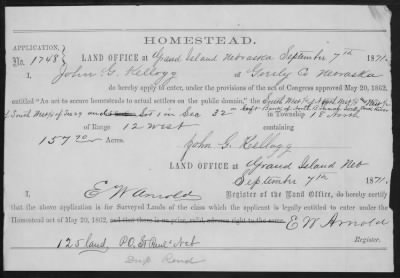 HOMESTEAD.
APPLICATION,
No. 1748
LAND OFFICE at Grand Island Nebraska September 7th 1871.
I, John G. Kellogg of Greely Co Nebraska
do hereby apply to enter, under the provisions of the act of Congress approved May 20, 1862,
entitled "An act to secure homesteads to actual settlers on the public domain," the South West 1/4 of North West 1/4
South West 1/4 of Sec 29 and Lot 1 in Sec 32 in Township 18 North
of Range 12 West containing
157 Acres.
John G. Kellogg
LAND OFFICE at Grand Island Neb
September 7th 1871.
I, E W Arnold Register of the Land Office, do hereby certify
that the above application is for Surveyed Lands of the class which the applicant is legally entitled to enter under the
Homestead act of May 20, 1862, and that there is no prior, valid, adverse right to the same.
E W Arnold
Register.
125 Land P.O. St Paul Neb